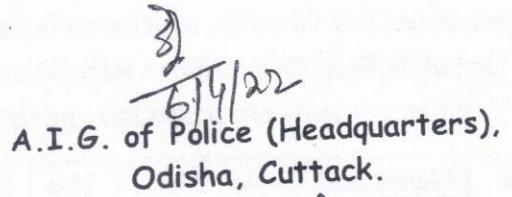 6/4/22
A.I.G. of Police (Headquarters),
Odisha, Cuttack.